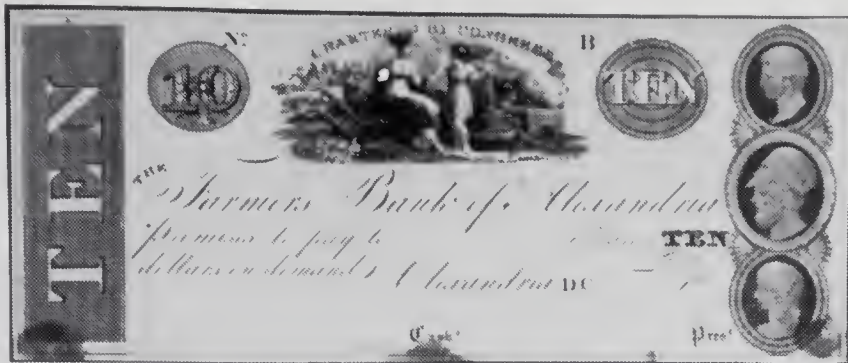 TEN
No
CHARTERED BY CONGRESS
B
10
TEN
THE
Farmers Bank of Alexandria
promises to pay to
TEN
dollars on demand Alexandria DC
Cashr
Prest